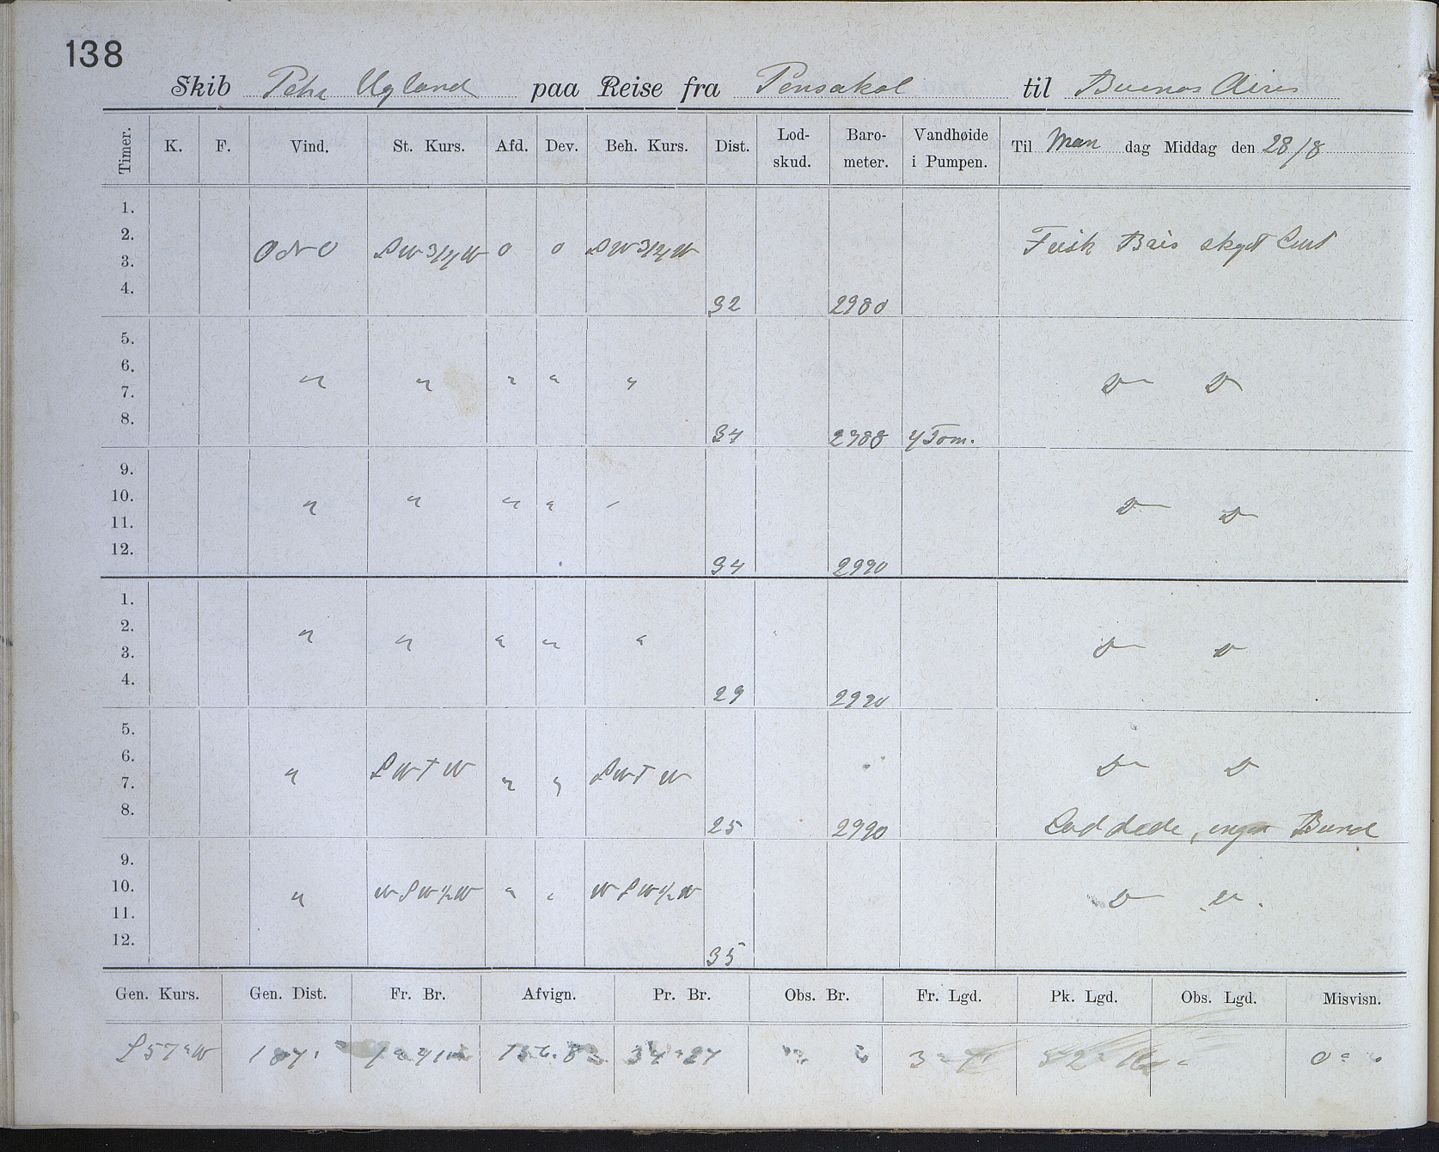 138
Skib Petra Ugland paa Reise fra Pensakol til Buenos Aires
Timer. K. F. Vind. St. Kurs. Afd. Dev. Beh. Kurs. Dist. Lod-skud. Baro-meter. Vandhøide i Pumpen. Til Man dag Middag den 28/8
1.
2. ONO SW 3/4 W 0 0 SW 3/4 W Frisk Bris skyet Luft
3.
4. 32 2980
5.
6. " " " " " Do Do
7.
8. 34 2988 4 Tom.
9.
10. " " " " " Do Do
11.
12. 34 2990
1.
2. " " " " " Do Do
3.
4. 29 2990
5.
6. " SWTW " " SWTW Do Do
7.
8. 25 2990 Loddede, ingen Bund
9.
10. " WSW 1/2 W " " WSW 1/2 W Do
11.
12. 35
Gen. Kurs. Gen. Dist. Fr. Br. Afvign. Pr. Br. Obs. Br. Fr. Lgd. Pk. Lgd. Obs. Lgd. Misvisn.
S 57° W 187' 34° 27